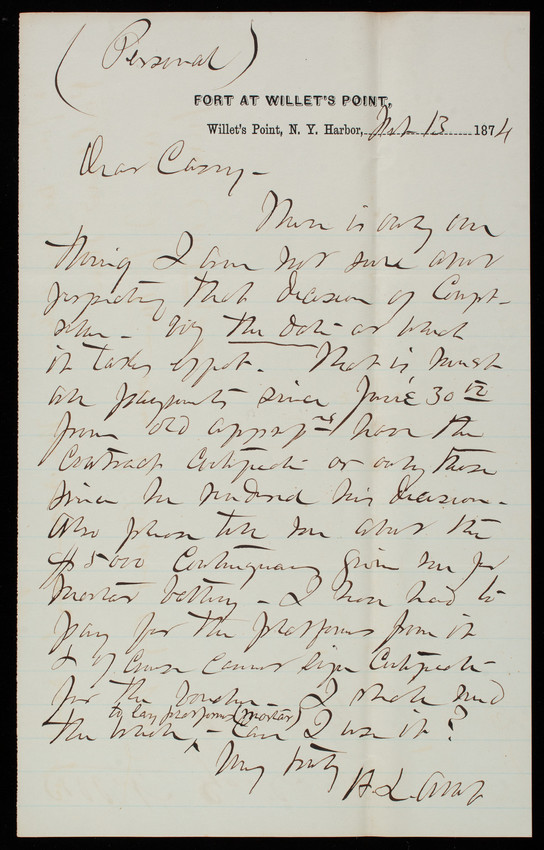 (Personal)
FORT AT WILLET'S POINT,
Willet's Point, N. Y. Harbor, 13 1874
Dear Casey -
There is only one
thing I am not sure about
respecting that decision of Compt-
roller - viz the date at which
it takes effect. That is must
all payments since June 30th
from old approp'ns have the
contract certificate or only those
since he rendered his decision -
Also please tell me about the
$5000 Contingency given me for
mortar battery - I have had to
pay for the platforms from it
& of course cannot sign certificate
for the voucher - I shall need
to lay platforms (mortar)
the whole, - Can I use it?
Very truly
H. L. Abbot